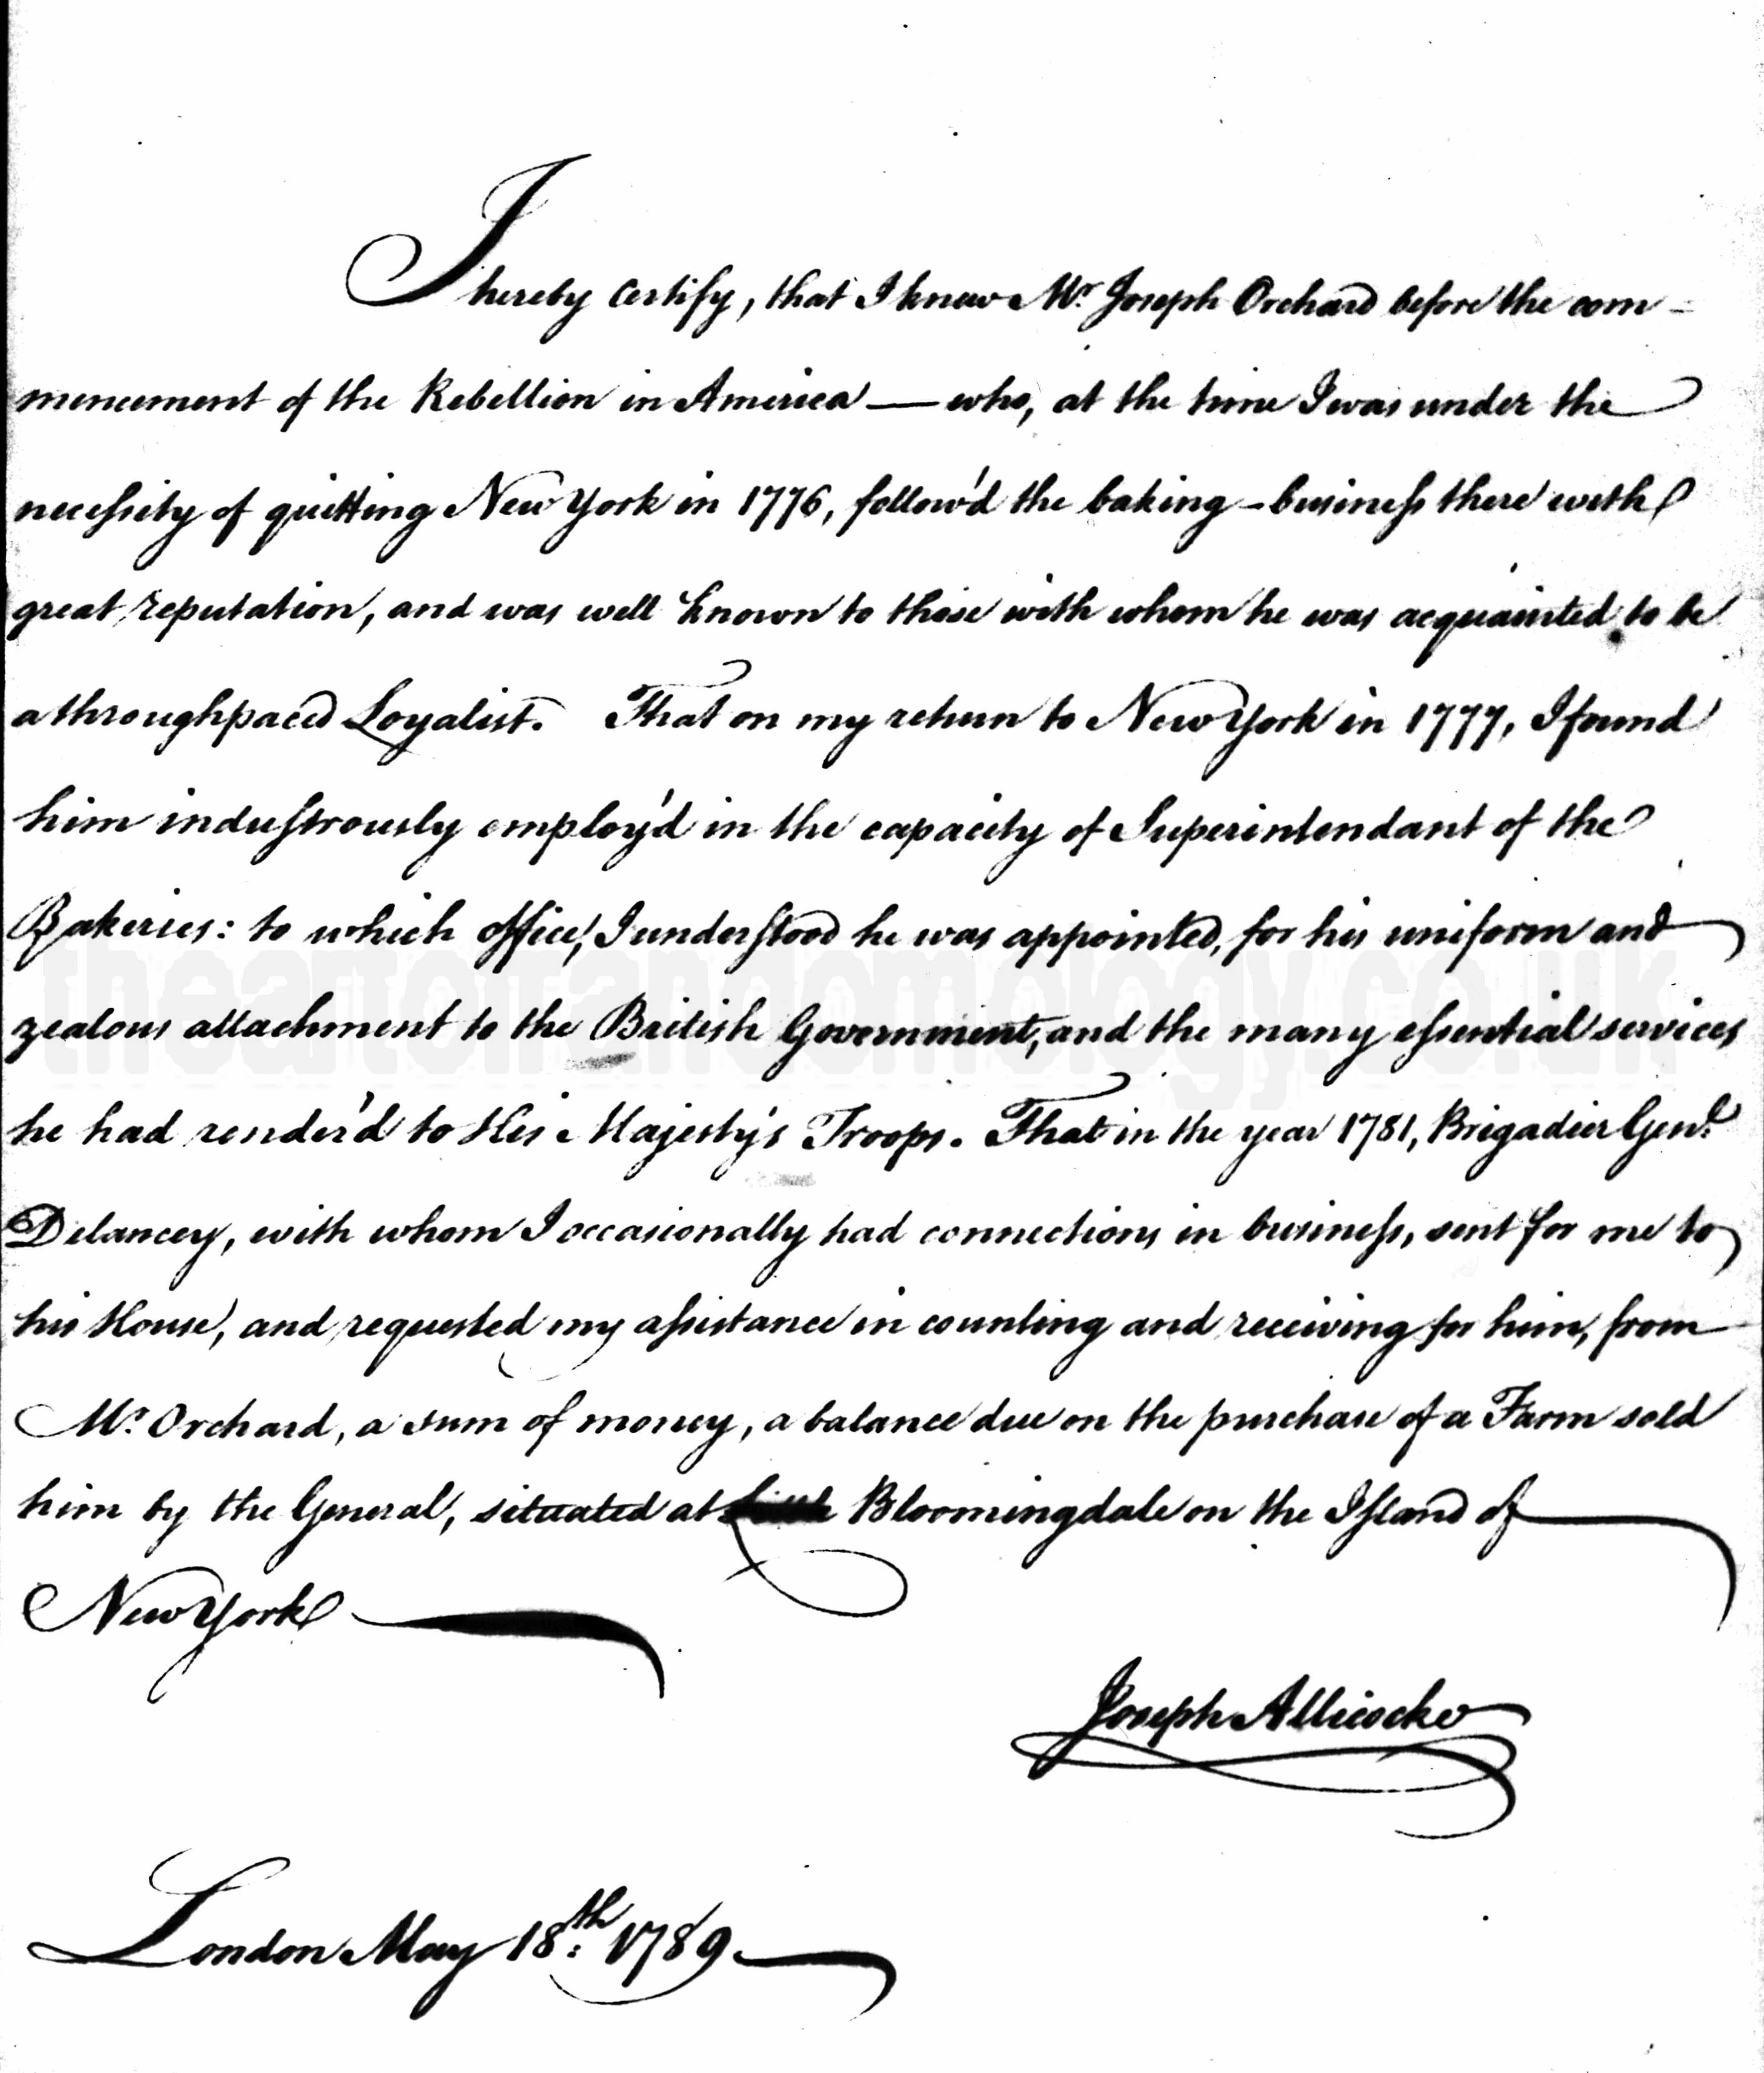 I hereby Certify, that I knew Mr. Joseph Orchard before the com=
mencement of the Rebellion in America — who, at the time I was under the
necessity of quitting New York in 1776, follow'd the baking-business there with
great reputation, and was well known to those with whom he was acquainted, to be
a throughpaced Loyalist. That on my return to New York in 1777, I found
him industrously employ'd in the capacity of Superintendant of the
Bakeries: to which office, I understood he was appointed, for his uniform and
zealous attachment to the British Government, and the many essential services
he had render'd to His Majesty's Troops. That in the year 1781, Brigadier Genl.
Delancey, with whom I occasionally had connections in business, sent for me to
his House, and requested my assistance in counting and receiving for him, from
Mr. Orchard, a sum of money, a balance due on the purchase of a Farm sold
him by the General, situated at Bloomingdale on the Island of
New York
Joseph Allicocke
London May 18th. 1789
theartofrandomology.co.uk